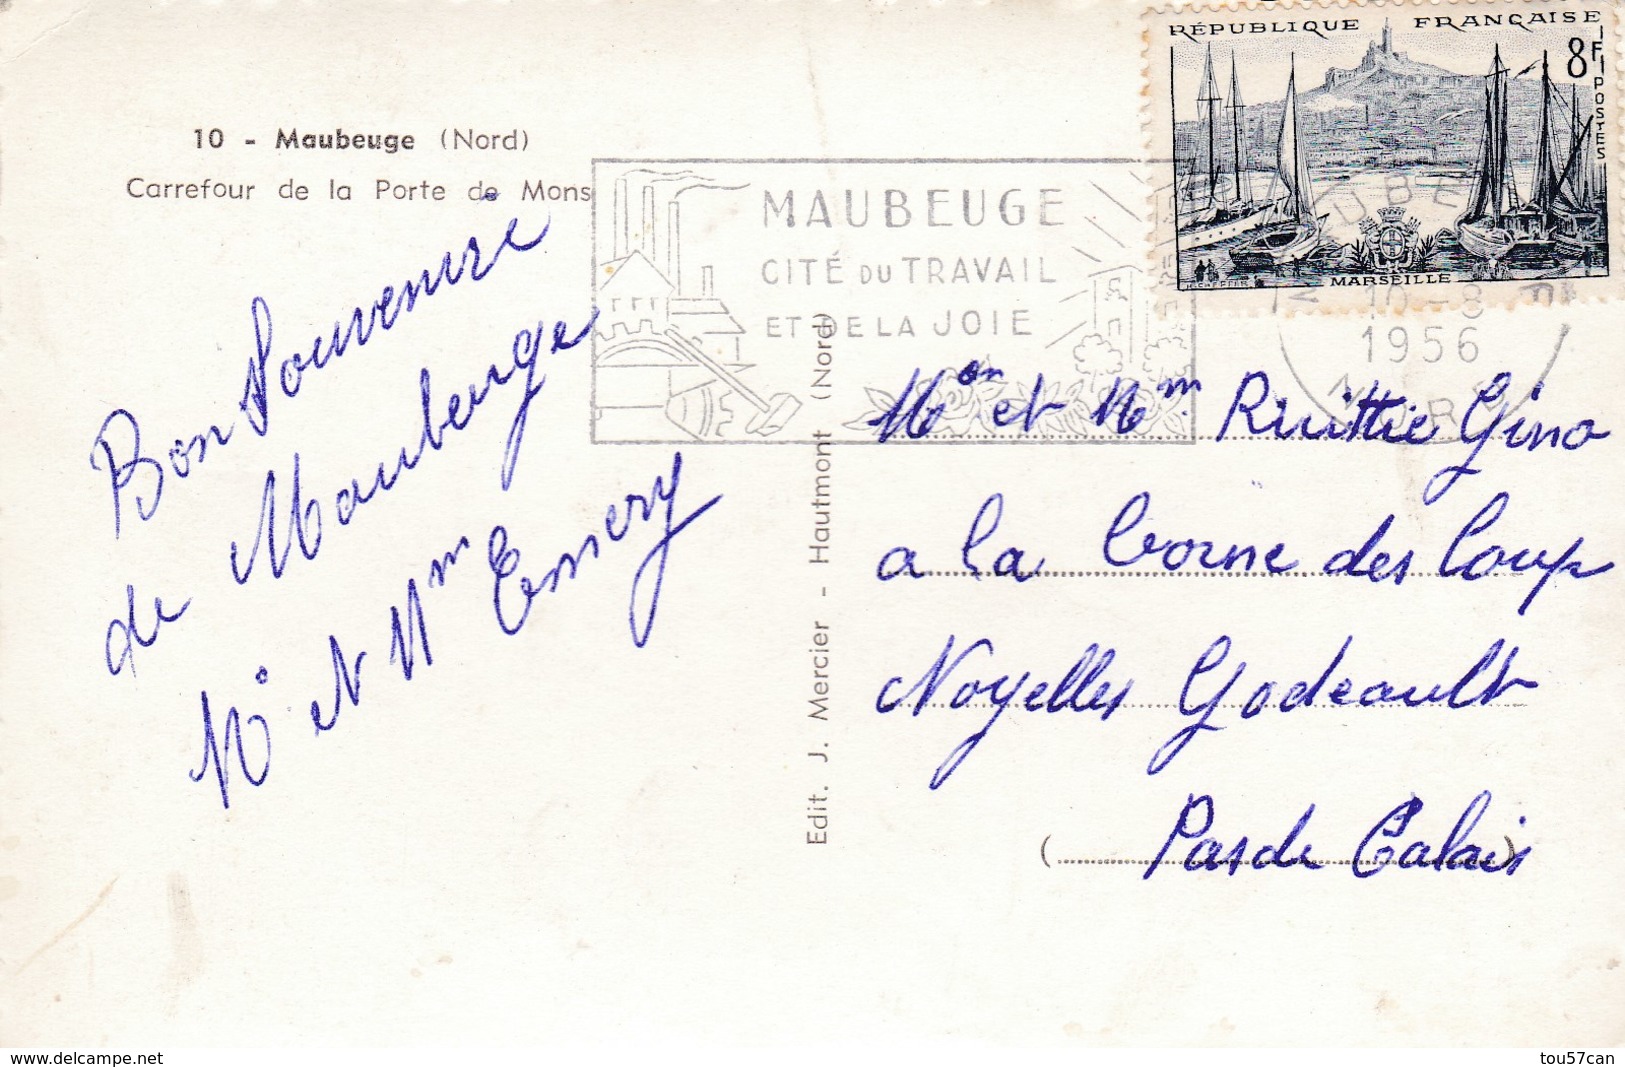 RÉPUBLIQUE FRANÇAISE
8F
POSTES
MARSEILLE
10 - Maubeuge (Nord)
Carrefour de la Porte de Mons
MAUBEUGE
CITÉ DU TRAVAIL
ET DE LA JOIE
10-8
1956
Bon Souvenire
de Maubeuge
Mr et Mm Emery
Edit. J. Mercier - Hautmont (Nord)
Mon et Mm Ruittie Gino
a la borne des loup
Noyelles Godeault
(Pas de Calais)
delcampe.net
tou57can